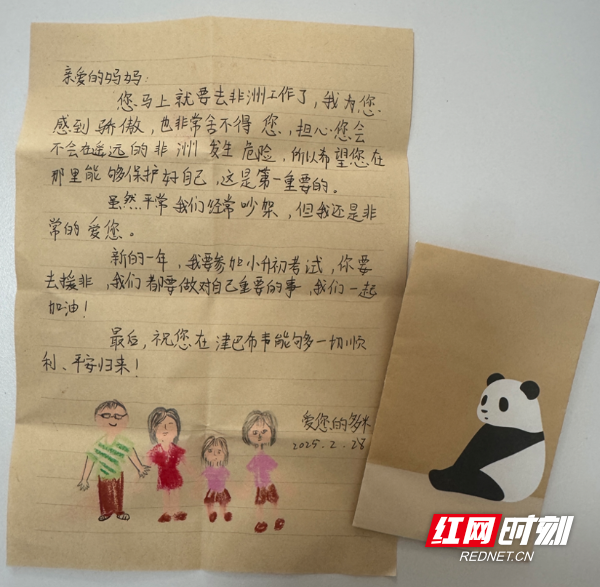 亲爱的妈妈：
您马上就要去非洲工作了，我为您
感到骄傲，也非常舍不得您，担心您会
不会在遥远的非洲发生危险，所以希望您在
那里能够保护好自己，这是第一重要的。
虽然平常我们经常吵架，但我还是非
常的爱您。
新的一年，我要参加小升初考试，你要
去援非，我们都要做对自己重要的事，我们一起
加油！
最后，祝您在津巴布韦能够一切顺
利、平安归来！
爱您的多米
2025.2.28
红网时刻
REDNET.CN